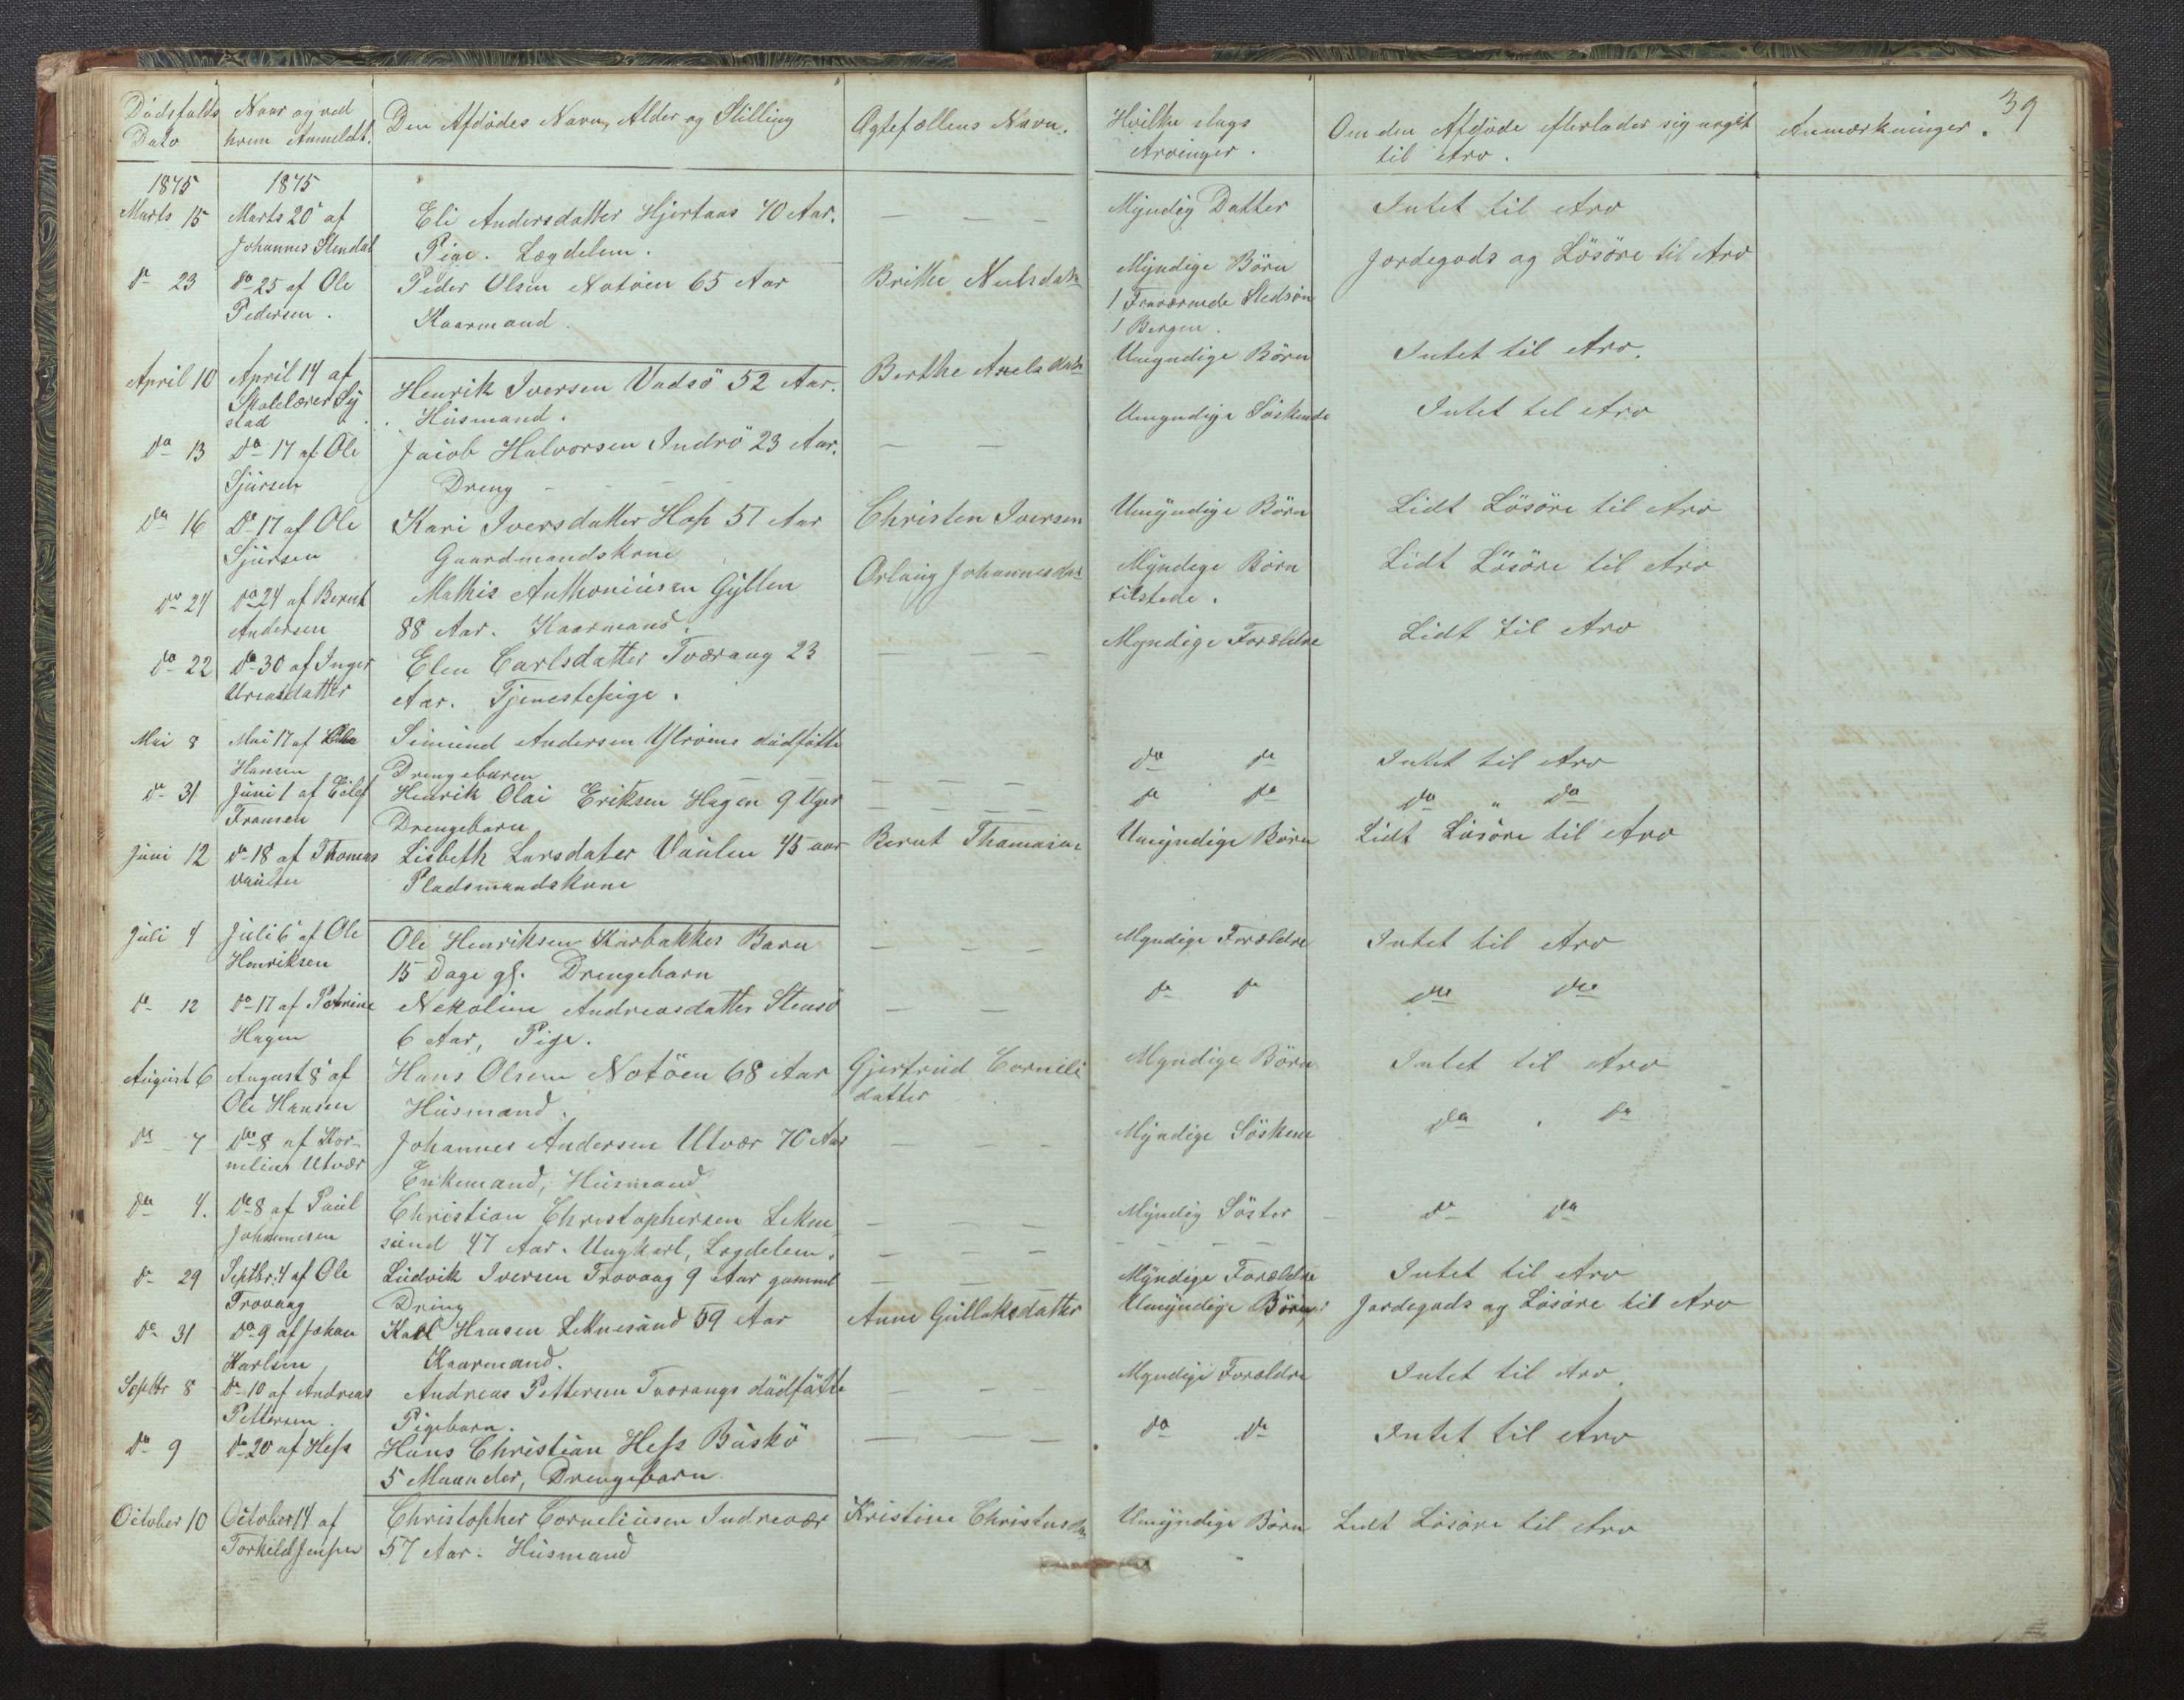 39
Dödsfalds Dato | Naar og ved hvem Anmeldt. | Den Afdödes Navn, Alder og Stilling | Ægtefællens Navn. | Hvilke slags Arvinger. | Om den Afdöde efterlader sig noget til Arv. | Anmærkninger.
1875 | 1875
Marts 15 | Marts 20 af | Eli Andersdatter Hjertaas 70 Aar. | — — — | Myndig Datter | Intet til Arv
Johannes Stendal | Pige. Lægdelem.
do 23 | do 25 af Ole | Peder Olsen Notöen 65 Aar | Brithe | Myndige Börn | Jordegods og Lösöre til Arv
Pedersen. | Kaarmand. | 1 Fraværende Stedsön
1 Bergen.
April 10 | April 14 af | Henrik Iversen Vadsö 52 Aar. | Berthe | Umyndige Börn | Intet til Arv.
Skolelærer Sy | Husmand.
stad
do 13 | do 17 af Ole | Jacob Halvorsen Indrö 23 Aar. | — — | Umyndige Söskende | Intet til Arv
Sjursen | Dreng
do 16 | do 17 af Ole | Kari Iversdatter Hop 57 Aar | Christen Iversen | Umyndige Börn | Lidt Lösöre til Arv
Sjursen | Gaardmandskone
do 24 | do 24 af Bernt | Mathis Anthoniusen Gylten | Orlaug Johannesdat | Myndige Börn | Lidt Lösöre til Arv
Andersen | 88 Aar. Kaarmand. | tilstede.
do 22 | do 30 af Inger | Elen Carlsdatter Tværaug 23 | — — — | Myndige Forældre | Lidt til Arv
Areasdatter | Aar. Tjenestepige.
Mai 8 | Mai 17 af | Simund Andersen Ytröens dödfötte | do do | Intet til Arv
Hansen | Drengebarn
do 31 | Juni 1 af Eilef | Henrik Olai Eriksen Hagen 9 Uger | — — — | do do | do " do
Fransen | Drengebarn
Juni 12 | do 18 af Thomas | Lisbeth Larsdater Vaulen 45 aar | Bernt Thomasen | Umyndige Börn | Lidt Lösöre til Arv
Vaulen | Pladsmandskone
Juli 4 | Juli 6 af Ole | Ole Henriksen Karbakkes Barn | — — — | Myndige Forældre | Intet til Arv
Henriksen | 15 Dage gl. Drengebarn
do 12 | do 17 af Petrine | Nekoline Andreasdatter Stensö | — — | do do | do do
Hagen | 6 Aar, Pige.
August 6 | August 8 af | Hans Olsen Notöen 68 Aar | Gjertrud Corneli | Myndige Börn | Intet til Arv
Ole Hansen | Husmand. | datter
do 7 | do 8 af Kor- | Johannes Andersen Utvær 70 Aar | — — | Myndige Söskene | do do
nelius Utvær | Enkemand, Husmand
do 4. | do 8 af Paul | Christian Christophersen Lekne | — — — | Myndig Söster | do do
Johannesen | sund 47 Aar. Ungkarl, Lægdelem. | — — — | — — — —
do 29 | Septbr. 4 af Ole | Ludvik Iversen Trovaag 9 Aar gammel | — — | Myndige Forældre | Intet til Arv
Trovaag | Dreng
do 31 | do 9 af Johan | Karl Hansen Leknesund 59 Aar | Anne Gullaksdatter | Umyndige Börn | Jordegods og Lösöre til Arv
Karlsen | Kaarmand.
Septbr 8 | do 10 af Andreas | Andreas Pettersen Tværangs dödfötte | — — | Myndige Forældre | Intet til Arv.
Pettersen. | Pigebarn.
do 9 | do 20 af Hess | Hans Christian Hess Buskö | — — — | do do | Intet til Arv
5 Maaneder, Drengebarn
October 10 | October 14 af | Christopher Corneliusen Indrevær | Kristine | Umyndige Börn | Lidt Lösöre til Arv
Torkild Jensen | 57 Aar. Husmand